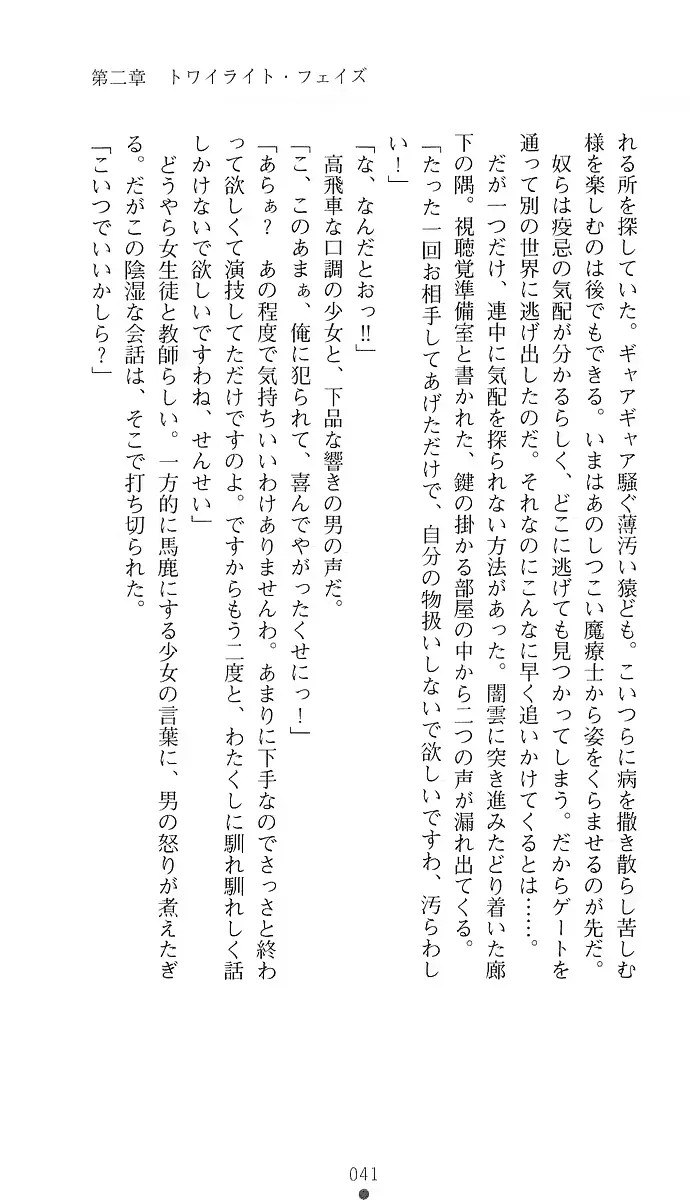 第二章　トワイライト・フェイズ
れる所を探していた。ギャアギャア騒ぐ薄汚い猿ども。こいつらに病を撒き散らし苦しむ
様を楽しむのは後でもできる。いまはあのしつこい魔療士から姿をくらませるのが先だ。
　奴らは疫忌の気配が分かるらしく、どこに逃げても見つかってしまう。だからゲートを
通って別の世界に逃げ出したのだ。それなのにこんなに早く追いかけてくるとは……。
　だが一つだけ、連中に気配を探られない方法があった。闇雲に突き進みたどり着いた廊
下の隅。視聴覚準備室と書かれた、鍵の掛かる部屋の中から二つの声が漏れ出てくる。
「たった一回お相手してあげただけで、自分の物扱いしないで欲しいですわ、汚らわし
い！」
「な、なんだとおっ‼」
　高飛車な口調の少女と、下品な響きの男の声だ。
「こ、このあまぁ、俺に犯られて、喜んでやがったくせにっ！」
「あらぁ？　あの程度で気持ちいいわけありませんわ。あまりに下手なのでさっさと終わ
って欲しくて演技してただけですのよ。ですからもう二度と、わたくしに馴れ馴れしく話
しかけないで欲しいですわね、せんせい」
　どうやら女生徒と教師らしい。一方的に馬鹿にする少女の言葉に、男の怒りが煮えたぎ
る。だがこの陰湿な会話は、そこで打ち切られた。
「こいつでいいかしら？」
041